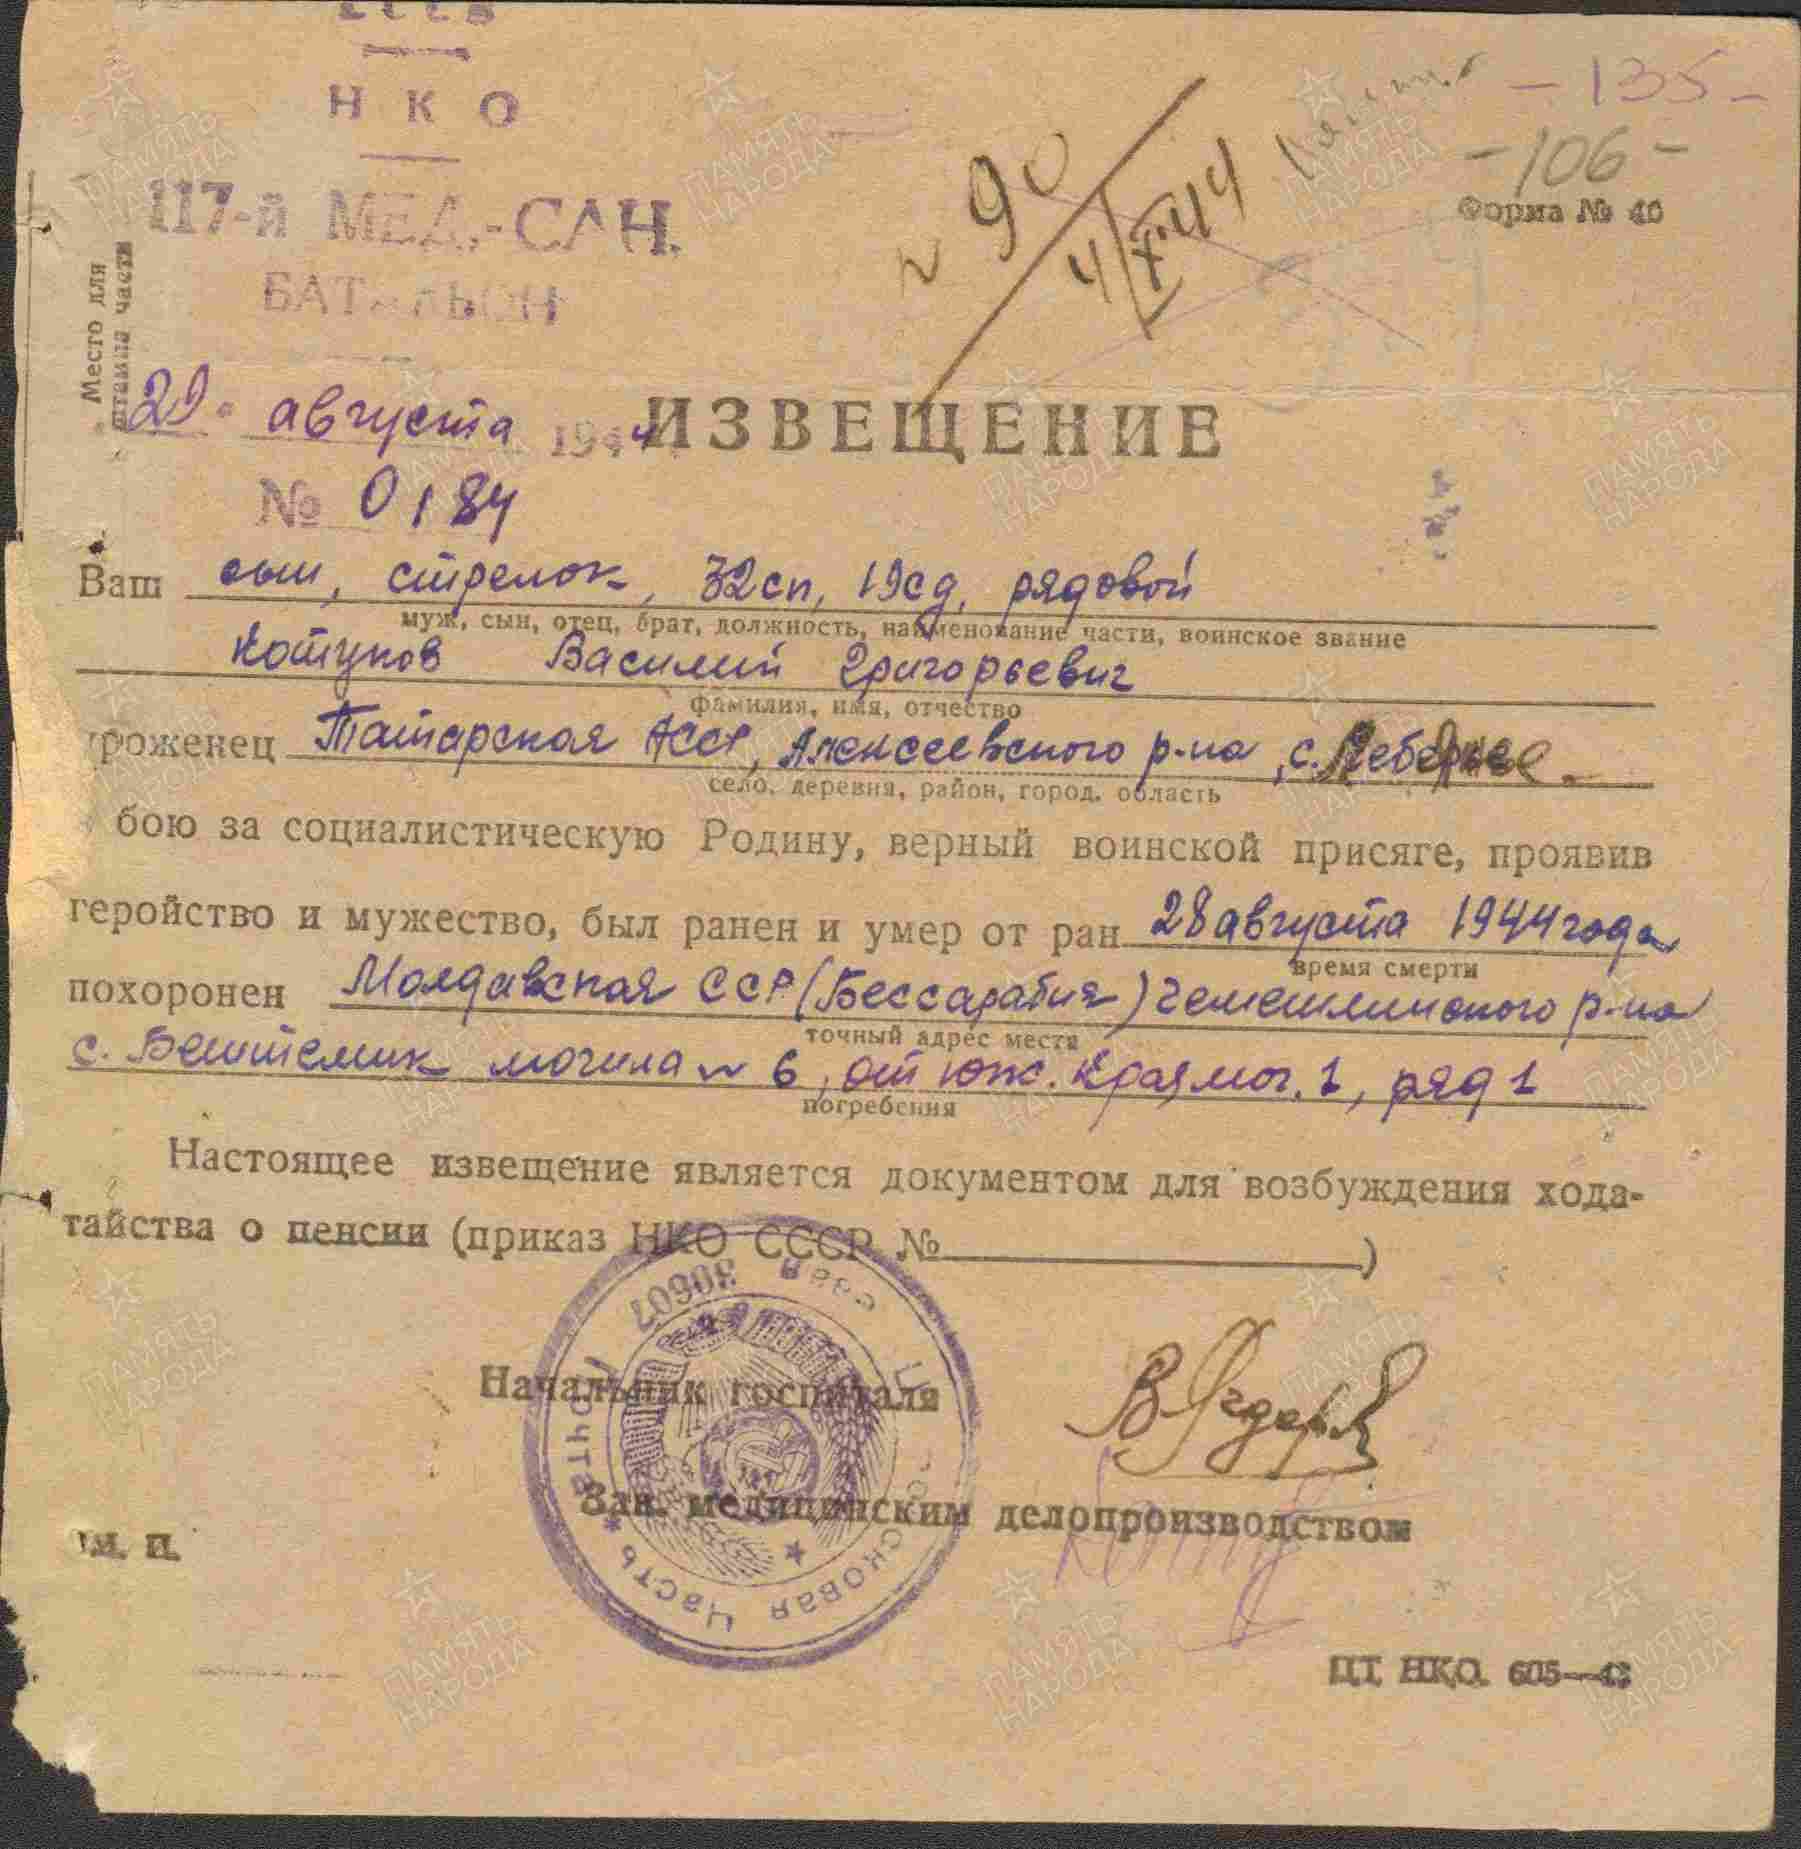 СССР
НКО
117-й МЕД.-САН.
БАТАЛЬОН
Место для
штампа части
№ 90
4/X-44
-135-
-106-
Форма № 40
29 августа 1944
ИЗВЕЩЕНИЕ
№ 0184
Ваш сын, стрелок, 32сп, 19сд, рядовой
муж, сын, отец, брат, должность, наименование части, воинское звание
Котунов Василий Григорьевич
фамилия, имя, отчество
уроженец Татарская АССР, Алексеевского р-на, с.
село, деревня, район, город, область
бою за социалистическую Родину, верный воинской присяге, проявив
геройство и мужество, был ранен и умер от ран 28 августа 1944 года
время смерти
похоронен Молдавская ССР (Бессарабия) Чемешлинского р-на
точный адрес места
с. Бештемик могила № 6, от юж. края мог. 1, ряд 1
погребения
Настоящее извещение является документом для возбуждения хода-
тайства о пенсии (приказ НКО СССР №            )
30607
Начальник госпиталя
Зав. медицинским делопроизводством
Войсковая часть * Полевая почта
М. П.
ЦТ НКО. 605—43
ПАМЯТЬ
НАРОДА